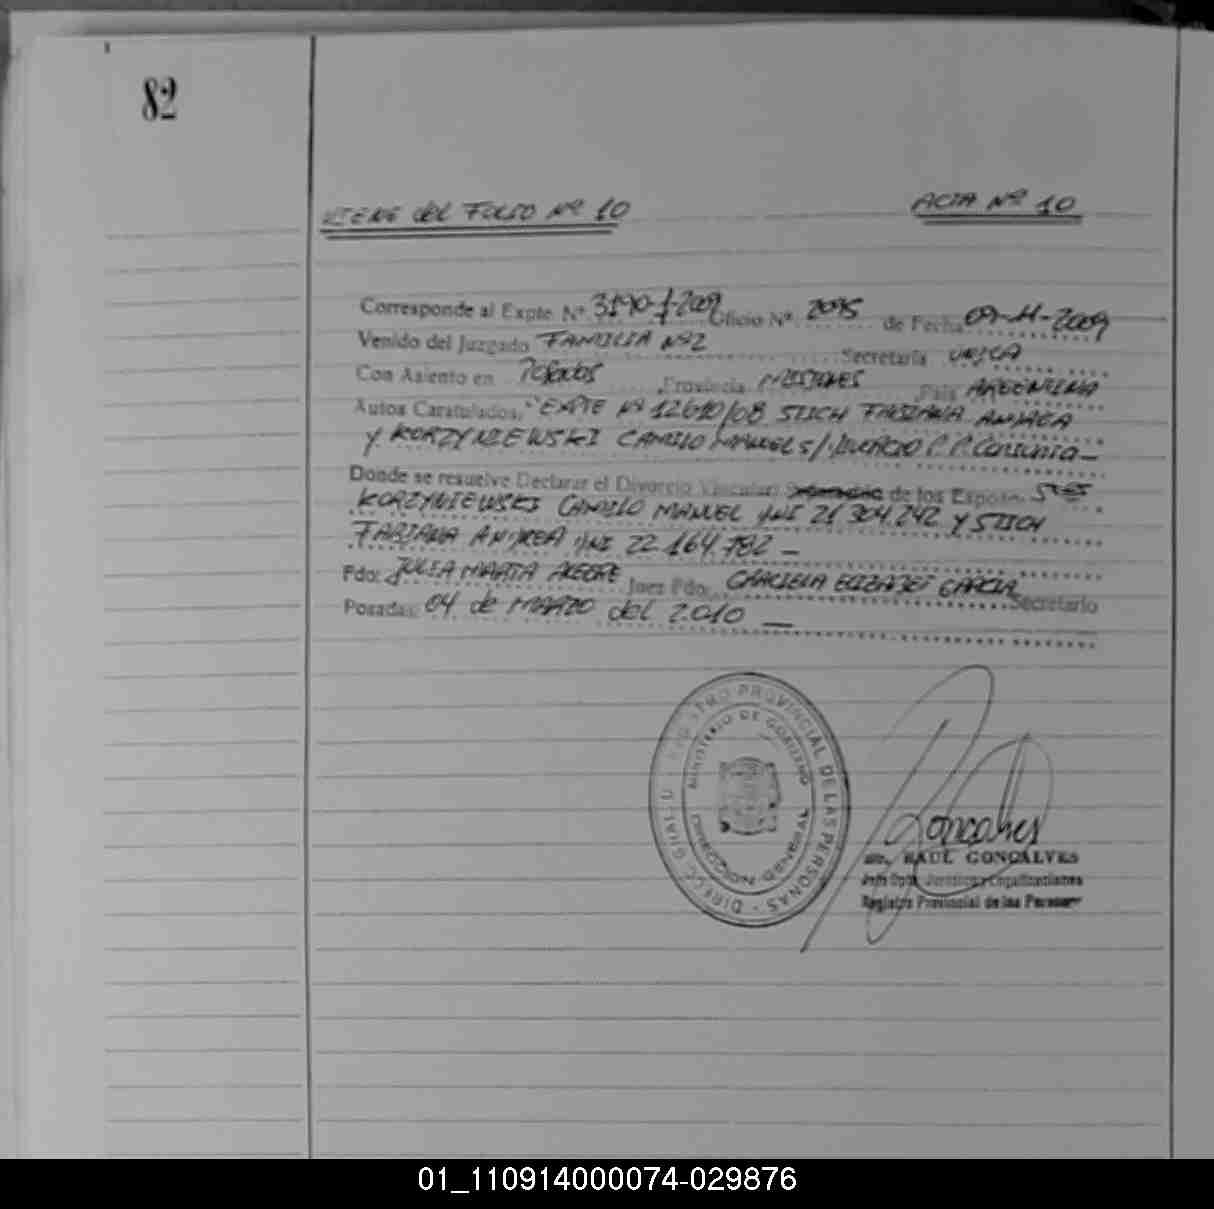 82
VIENE del FOLIO Nº 10
ACTA Nº 10
Corresponde al Expte. Nº 3190-1-2009 Oficio Nº 2095 de Fecha 09-11-2009
Venido del Juzgado FAMILIA Nº2 Secretaría UNICA
Con Asiento en Posadas Provincia MISIONES País ARGENTINA
Autos Caratulados, "EXPTE Nº 12610/08 STICH FABIANA ANDREA
y KORZYNIEWSKI CAMILO MANUEL S/ DIVORCIO P.P. Conjunta
Donde se resuelve Declarar el Divorcio Vincular de los Esposos
KORZYNIEWSKI CAMILO MANUEL DNI 21.304.242 Y STICH
FABIANA ANDREA DNI 22.164.782 —
Fdo: JULIA MARTA ALEGRE Juez Fdo: GRACIELA ELIZABET GARCIA Secretario
Posadas, 04 de MARZO del 2.010 —
REGISTRO PROVINCIAL DE LAS PERSONAS - DIRECC. GRAL.
MINISTERIO DE GOBIERNO
DIRECCION GENERAL
Goncalves
RAUL GONCALVES
Jefe Dpto. Jurídico y Legalizaciones
Registro Provincial de las Personas
01_110914000074-029876